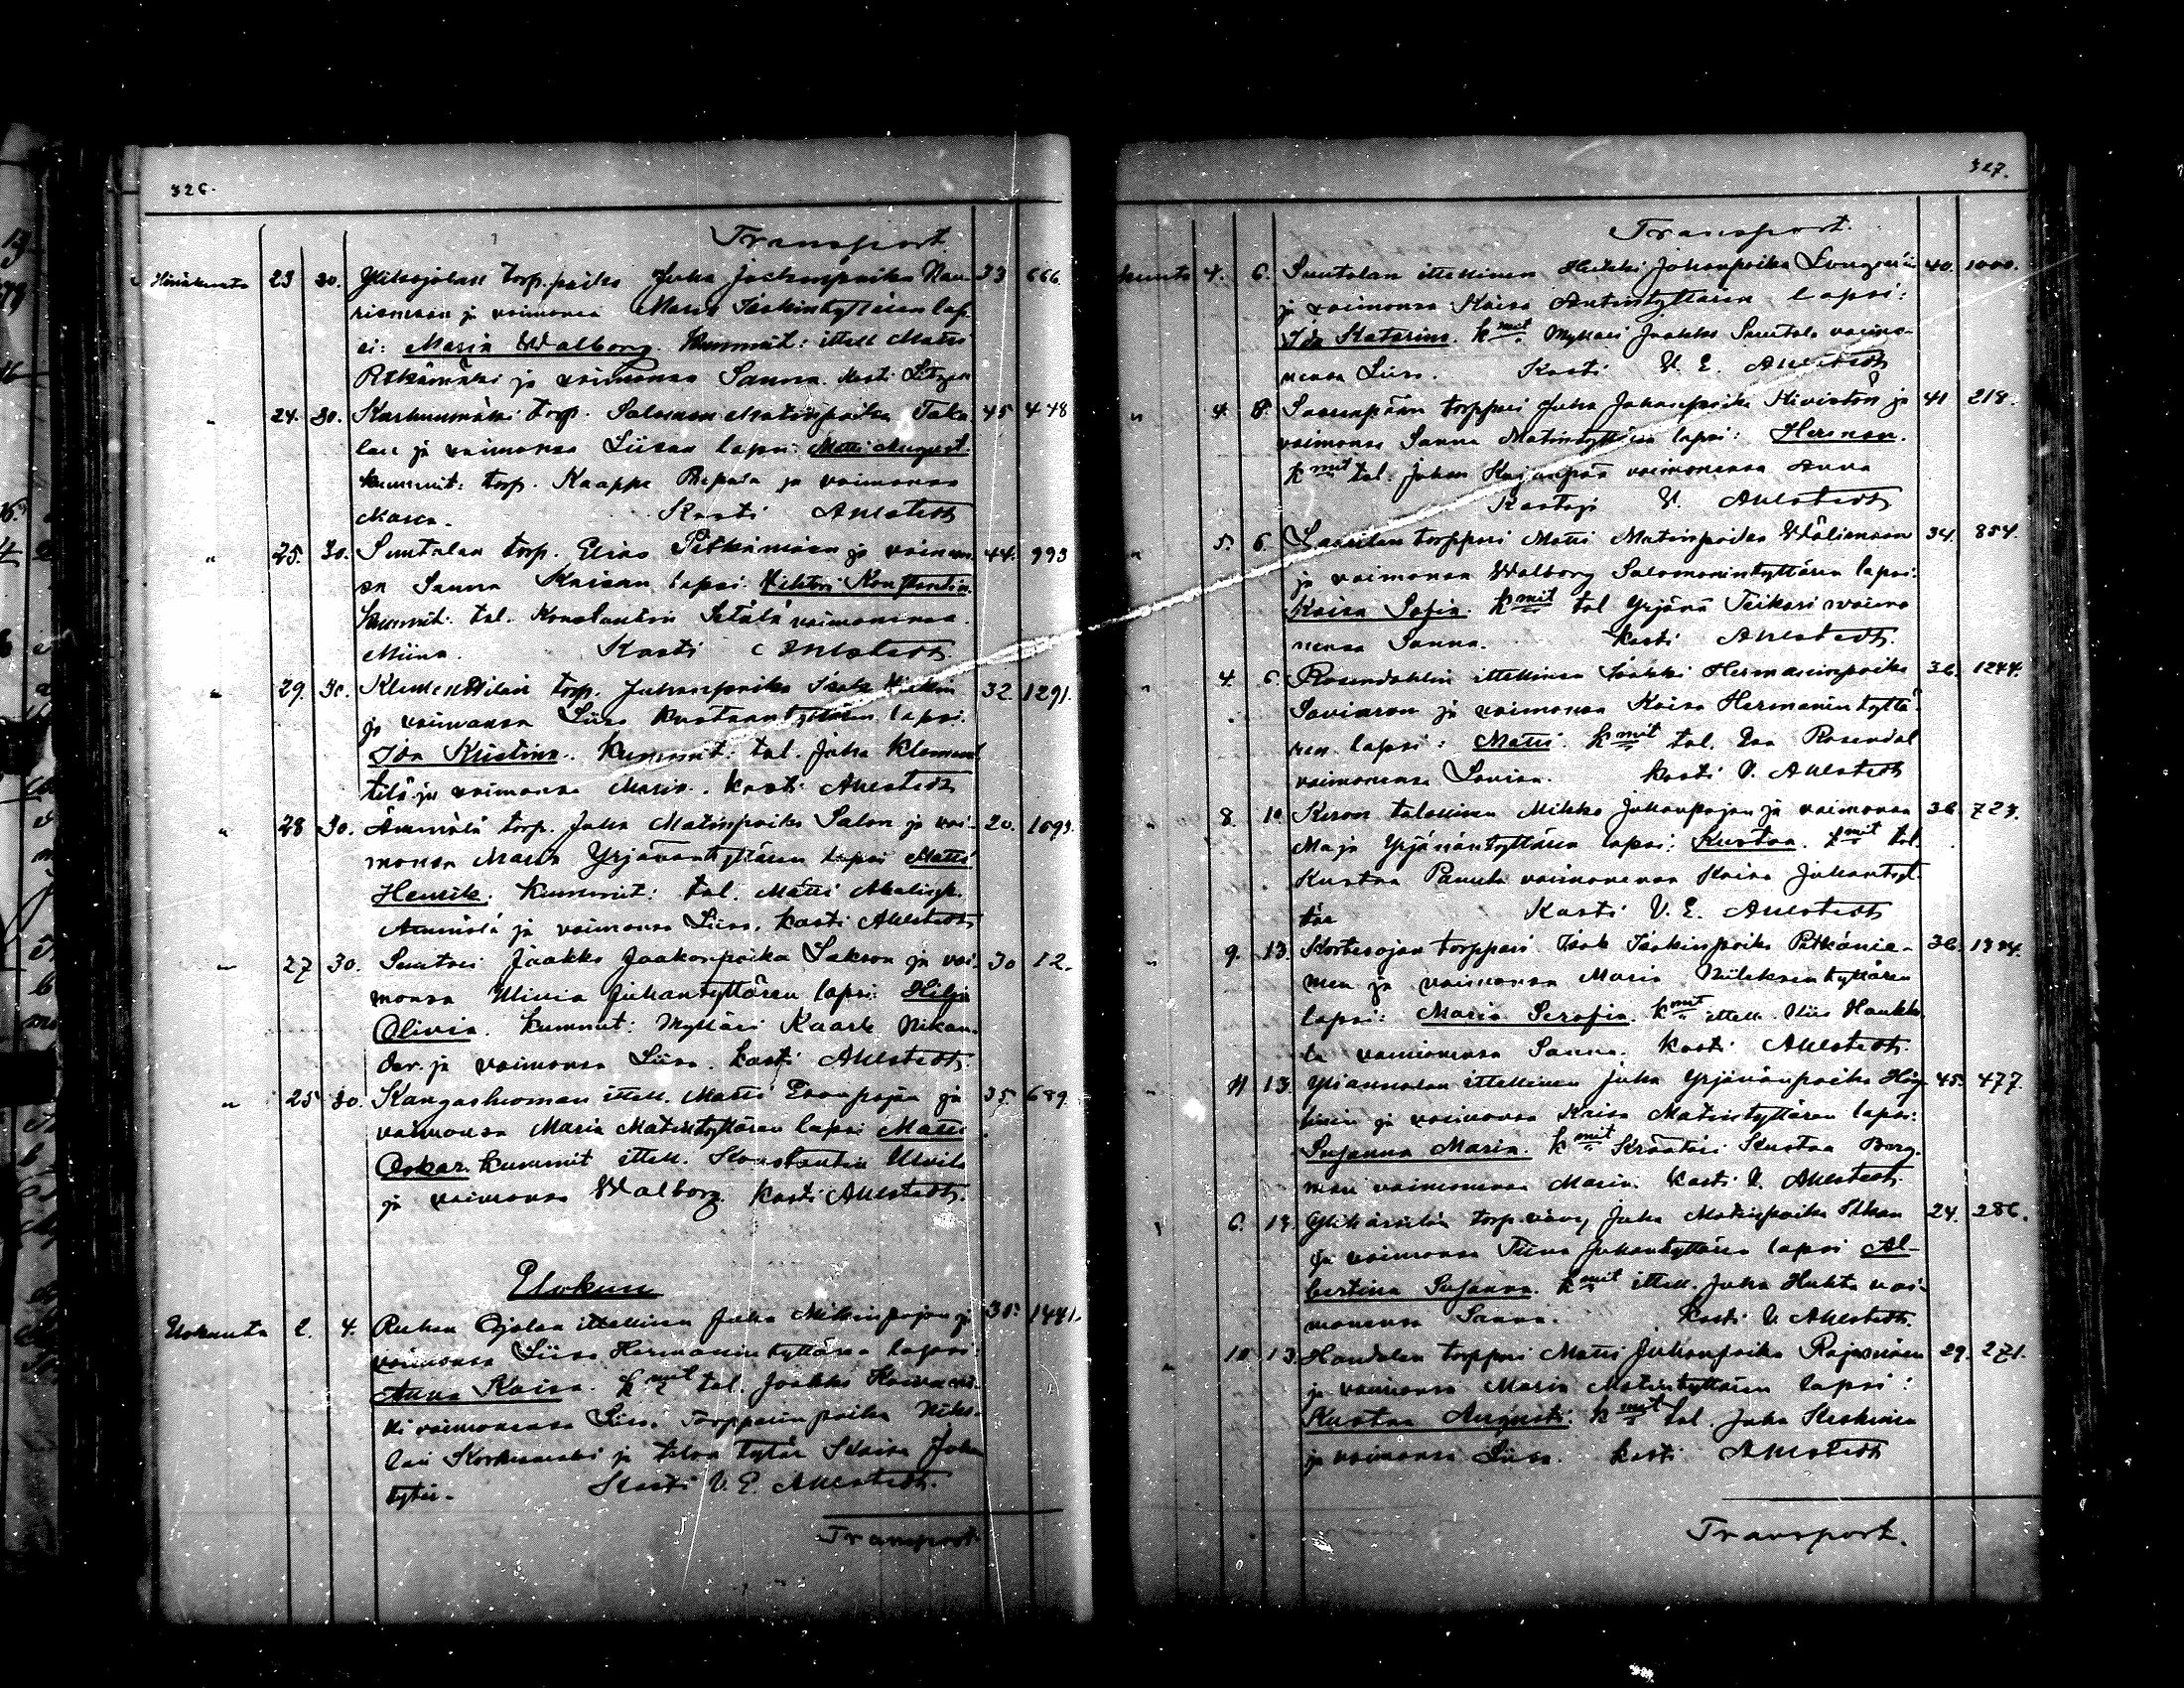 326.
Transport
Heinäkuuta 23 30. torp. poika Juha Jaakonpoika Nau- 33 666.
rismaan ja vaimonsa Maria Iisakintyttären lap-
si: Maria Walborg. Kummit: itsell Matti
Pitkämäki ja vaimonsa Sanna. Kasti
" 24. 30. Karhunmäki torp. Salomon Matinpoika Taka 45 448
lan ja vaimonsa Liisan lapsi: Matti August.
kummit: torp. Kaappo Repola ja vaimonsa
Maria. Kasti Ahlstedt
" 25. 30. Suutalan torp. Elias Pitkämäen ja vaimon- 44. 993
sa Sanna Kaisan lapsi: Vihtori Konstantin.
Kummit: tal. Konstantin Setälä vaimonensa
Miina. Kasti Ahlstedt.
" 29. 30. torp. Juhanpoika Isak 32. 1291.
ja vaimonsa Liisa Kustaantyttären lapsi.
Ida Kristina. Kummit: tal. Juha Klement
tilä ja vaimonsa Maria. Kasti: Ahlstedt
" 28 30. Ämmälä torp. Juha Matinpoika Salon ja vai- 20.
monsa Maria Yrjänäntyttären lapsi Matti
Henrik. Kummit: tal. Matti
Ämmälä ja vaimonsa Liisa. Kasti Ahlstedt
" 27 30. Suutari Jaakko Jaakonpoika Sakson ja vai- 30 12.
monsa Juhantyttären lapsi: Hilja
Olivia. Kummit: Mylläri Kaarle Nikan-
der ja vaimonsa Liisa. Kasti Ahlstedt.
" 25 30. Kangashuoman itsell. Matti Eeronpojan ja 35. 689.
vaimonsa Maria Matintyttären lapsi Matti
Oskar. Kummit itsell. Konstantin
ja vaimonsa Walborg. Kasti Ahlstedt.
Elokuu
Elokuuta 2. 4. Ojalan itsellisen Juha Mikinpojan ja 30. 1441.
vaimonsa Liisa Hermannintyttären lapsi:
Anna Kaisa. kmit tal. Jaakko
ki vaimonensa Liisa. Torpparinpoika Niko-
lai Korkiamäki ja talon tytär Kaisa Juhan
tytär. Kasti V. E. Ahlstedt.
Transport
327.
Transport.
kuuta 4. 6. Suutalan itsellinen Heikki Johanpoika 40. 1000.
ja vaimonsa Kaisa Antintyttären lapsi:
Ida Katarina. kmit Mylläri Jaakko Suutala vaimo-
nensa Liisa. Kasti V. E. Ahlstedt
" 4. 8. Saarenpään torppari Juha Johanpoika Kiviston ja 41 218.
vaimonsa Sanna Matintyttären lapsi: Herman.
kmit tal. Johan Kujanpää vaimonensa Anna
Kastoja V. Ahlstedt
" 5. 6. Laurilan torppari Matti Matinpoika Wälimaan 34. 854.
ja vaimonsa Walborg Salomonintyttären lapsi:
Kaisa Sofia. kmit tal Yrjänä Teikari vaimo
nensa Sanna. Kasti Ahlstedt.
" 4. 6. Rosendahlin itsellinen Iisakki Hermanninpoika 36. 1244.
Saviaron ja vaimonsa Kaisa Hermannintyttä-
ren lapsi: Matti. kmit tal. Rosendal
vaimonensa Lovisa. Kasti V. Ahlstedt
" 8. 10 talollinen Mikko Juhanpojan ja vaimonsa 36. 723.
Maja Yrjänäntyttären lapsi: Kustaa. kmit tal.
Kustaa Panula vaimonensa Kaisa Juhantyt-
tär Kasti V. E. Ahlstedt
" 9. 13. Kortesojan torppari Isak Iisakinpoika Pitkänie- 36. 1324.
men ja vaimonsa Maria tyttären
lapsi: Maria Serafia. kmit itsell. Haukka-
la vaimonensa Sanna. Kasti Ahlstedt.
" 11 13. Yliannalan itsellinen Juha Yrjänänpoika Hög- 45. 477.
linin ja vaimonsa Kaisa Matintyttären lapsi:
Susanna Maria. kmit Kräätäri Kustaa Berg-
man vaimonensa Maria. Kasti V. Ahlstedt.
" 6. 13. torp. vävy Juha Matinpoika 24. 286.
ja vaimonsa Tiina Juhantyttären lapsi Al-
bertina Susanna. kmit itsell. Juha Huhta vai-
monensa Sanna. Kasti V. Ahlstedt.
" 10 13. Handolan torppari Matti Juhanpoika Rajamäen 29. 271.
ja vaimonsa Maria Matintyttären lapsi:
Kustaa Augusti. kmit tal. Juha Keskinen
ja vaimonsa Liisa. Kasti Ahlstedt
Transport.